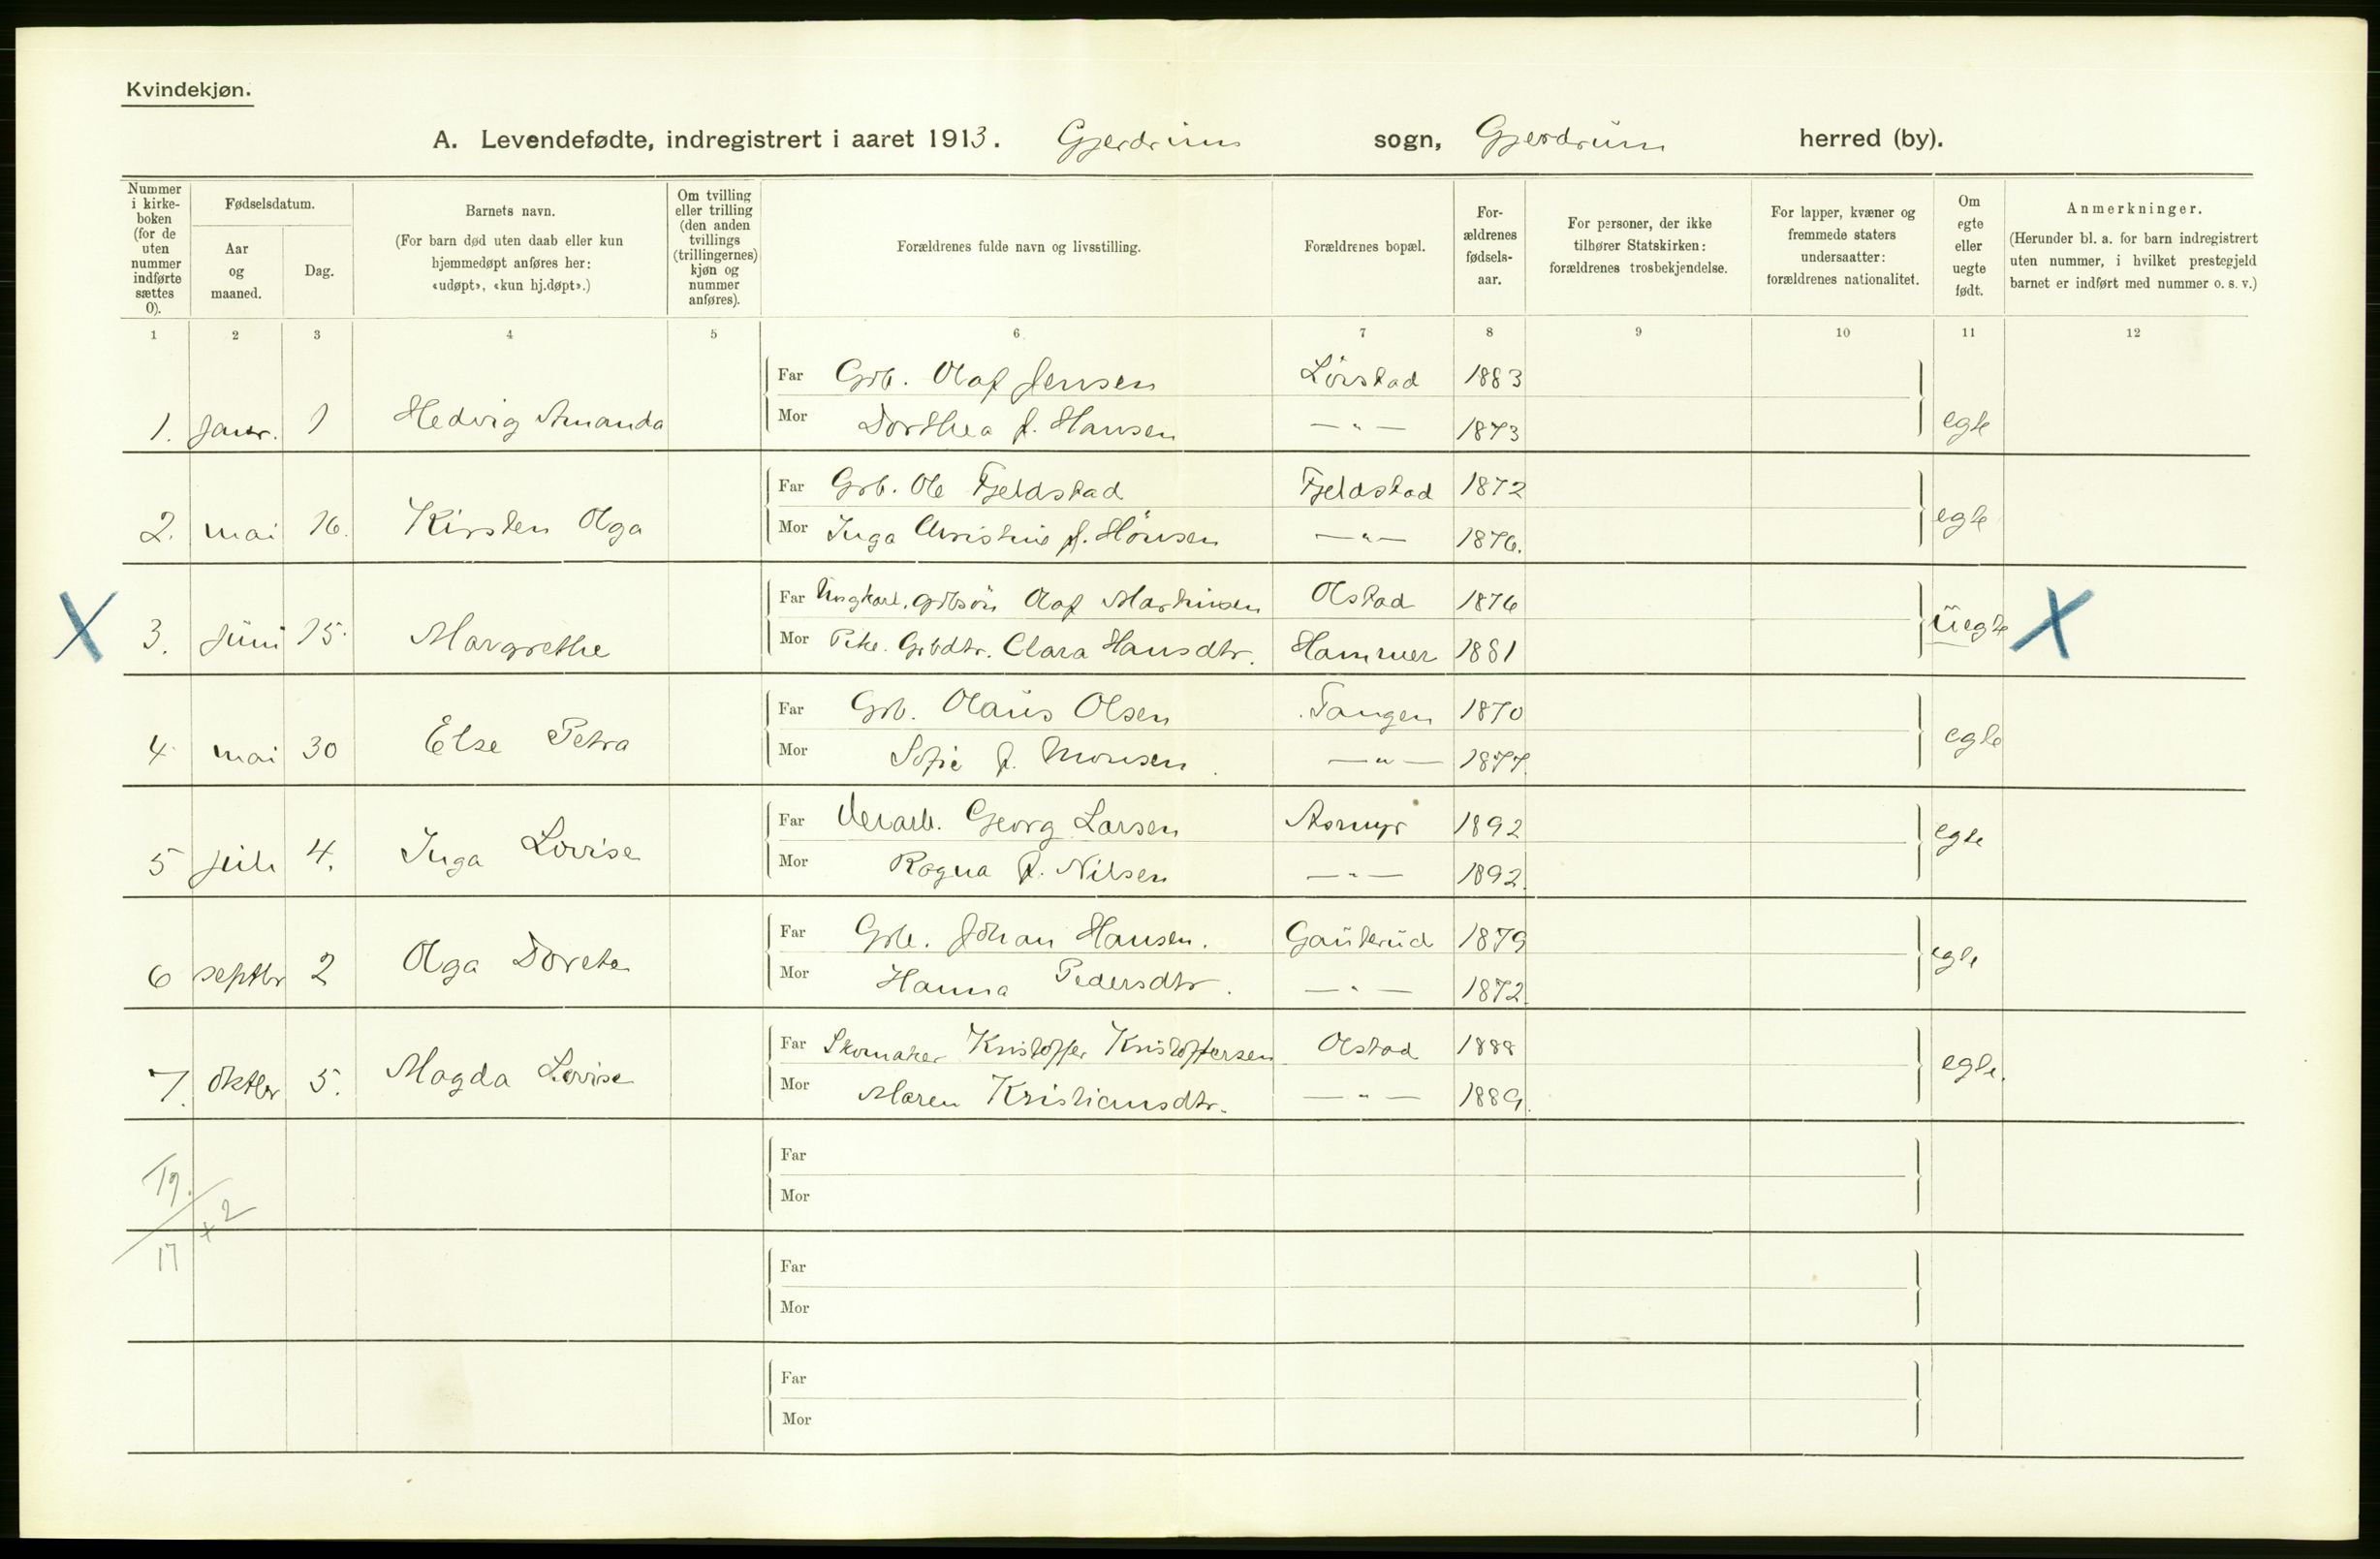 Kvindekjøn.
A. Levendefødte, indregistrert i aaret 1913. Gjerdrum sogn, Gjerdrum herred (by).
Nummer i kirke-boken (for de uten nummer indførte sættes 0).
Fødselsdatum.
Aar og maaned.
Dag.
Barnets navn.
(For barn død uten daab eller kun hjemmedøpt anføres her: «udøpt», «kun hj.døpt».)
Om tvilling eller trilling (den anden tvillings (trillingernes) kjøn og nummer anføres).
Forældrenes fulde navn og livsstilling.
Forældrenes bopæl.
For-ældrenes fødsels-aar.
For personer, der ikke tilhører Statskirken: forældrenes trosbekjendelse.
For lapper, kvæner og fremmede staters undersaatter: forældrenes nationalitet.
Om egte eller uegte født.
Anmerkninger.
(Herunder bl. a. for barn indregistrert uten nummer, i hvilket prestegjeld barnet er indført med nummer o. s. v.)
1 2 3 4 5 6 7 8 9 10 11 12
Far Grb. Olaf Jensen Lørstad 1883
1. Janr. 1 Hedvig Amanda Mor Dorthea f. Hansen —"— 1873 egte
Far Grb. Ole Fjeldstad Fjeldstad 1872
2. mai 16. Kirsten Olga Mor Inga Christine f. Hansen —"— 1876. egte
Far Ungkarl. Grbsøn Olaf Martinsen Olstad 1876
X 3. Juni 15. Margrethe Mor Pike. Grbdtr. Clara Hansdtr. Hammer 1881 uegte X
Far Grb. Olaus Olsen Tangen 1870
4. mai 30 Else Petra Mor Sofie f. Monsen. —"— 1877. egte
Far Georg Larsen Asmyr 1892
5 juli 4. Inga Lovise Mor Ragna f. Nilsen —"— 1892. egte
Far Grb. Johan Hansen. Gauterud 1879
6 septbr 2 Olga Dorete Mor Hanna Pedersdtr. —"— 1872. egte
Far Skomaker Kristoffer Kristoffersen Olstad 1888
7. oktbr 5. Magda Lovise Mor Maren Kristiansdtr. —"— 1889. egte.
Far
Mor
19.
+ 2
17
Far
Mor
Far
Mor